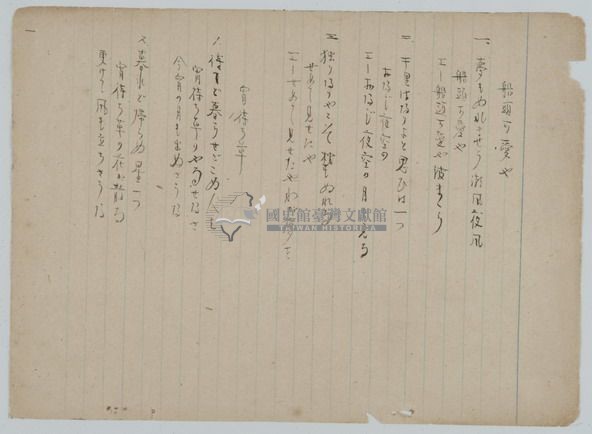 船頭可愛や
一、夢もぬれませう潮風夜風
船頭可愛や
エー船頭可愛や波まくら
二、千里はなりよと思ひは一つ
おなじ夜空の
エーおなじ夜空の月
三、独りなりやこそ枕もぬれる
せめて見せたや
エーせめて見せたや
宵待草
1、待てど暮らせどこぬ人を
宵待草のやるせなさ
今宵の月も出ぬさうな
2、暮れて 星一つ
宵待草の花が散る
更けて 風も立ちさうな
國史館臺灣文獻館
TAIWAN HISTORICA